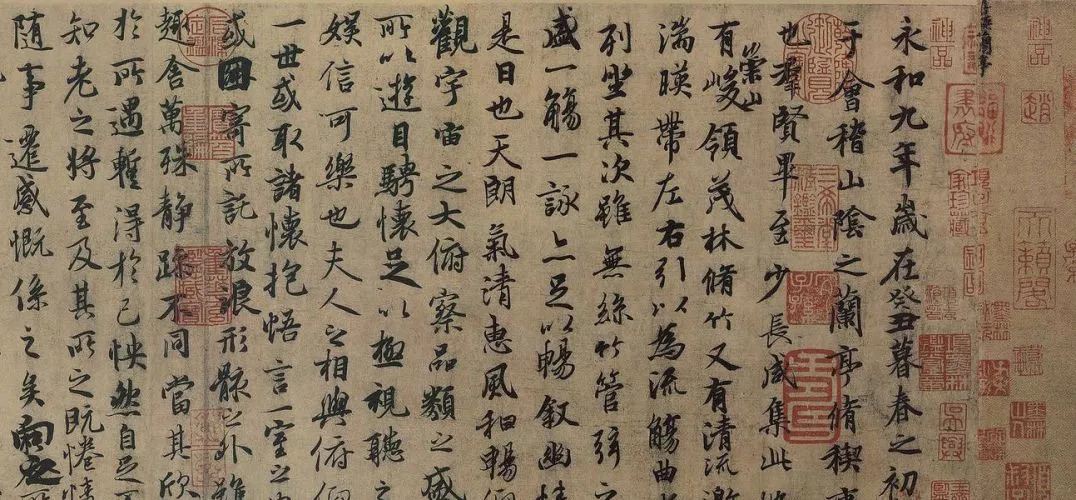 天籟閣
趙
永和九年歲在癸丑暮春之初
于會稽山陰之蘭亭脩稧事
也群賢畢至少長咸集此地
有崇山峻領茂林脩竹又有清流激
湍暎帶左右引以為流觴曲
列坐其次雖無絲竹管弦之
盛一觴一詠亦足以暢叙幽情
是日也天朗氣清惠風和暢仰
觀宇宙之大俯察品類之盛
所以遊目騁懷足以極視聽之
娛信可樂也夫人之相與俯仰
一世或取諸懷抱悟言一室之內
或因寄所託放浪形骸之外雖
趣舍萬殊靜躁不同當其欣
於所遇暫得於己怏然自足不
知老之將至及其所之既惓情
隨事遷感慨係之矣向之所